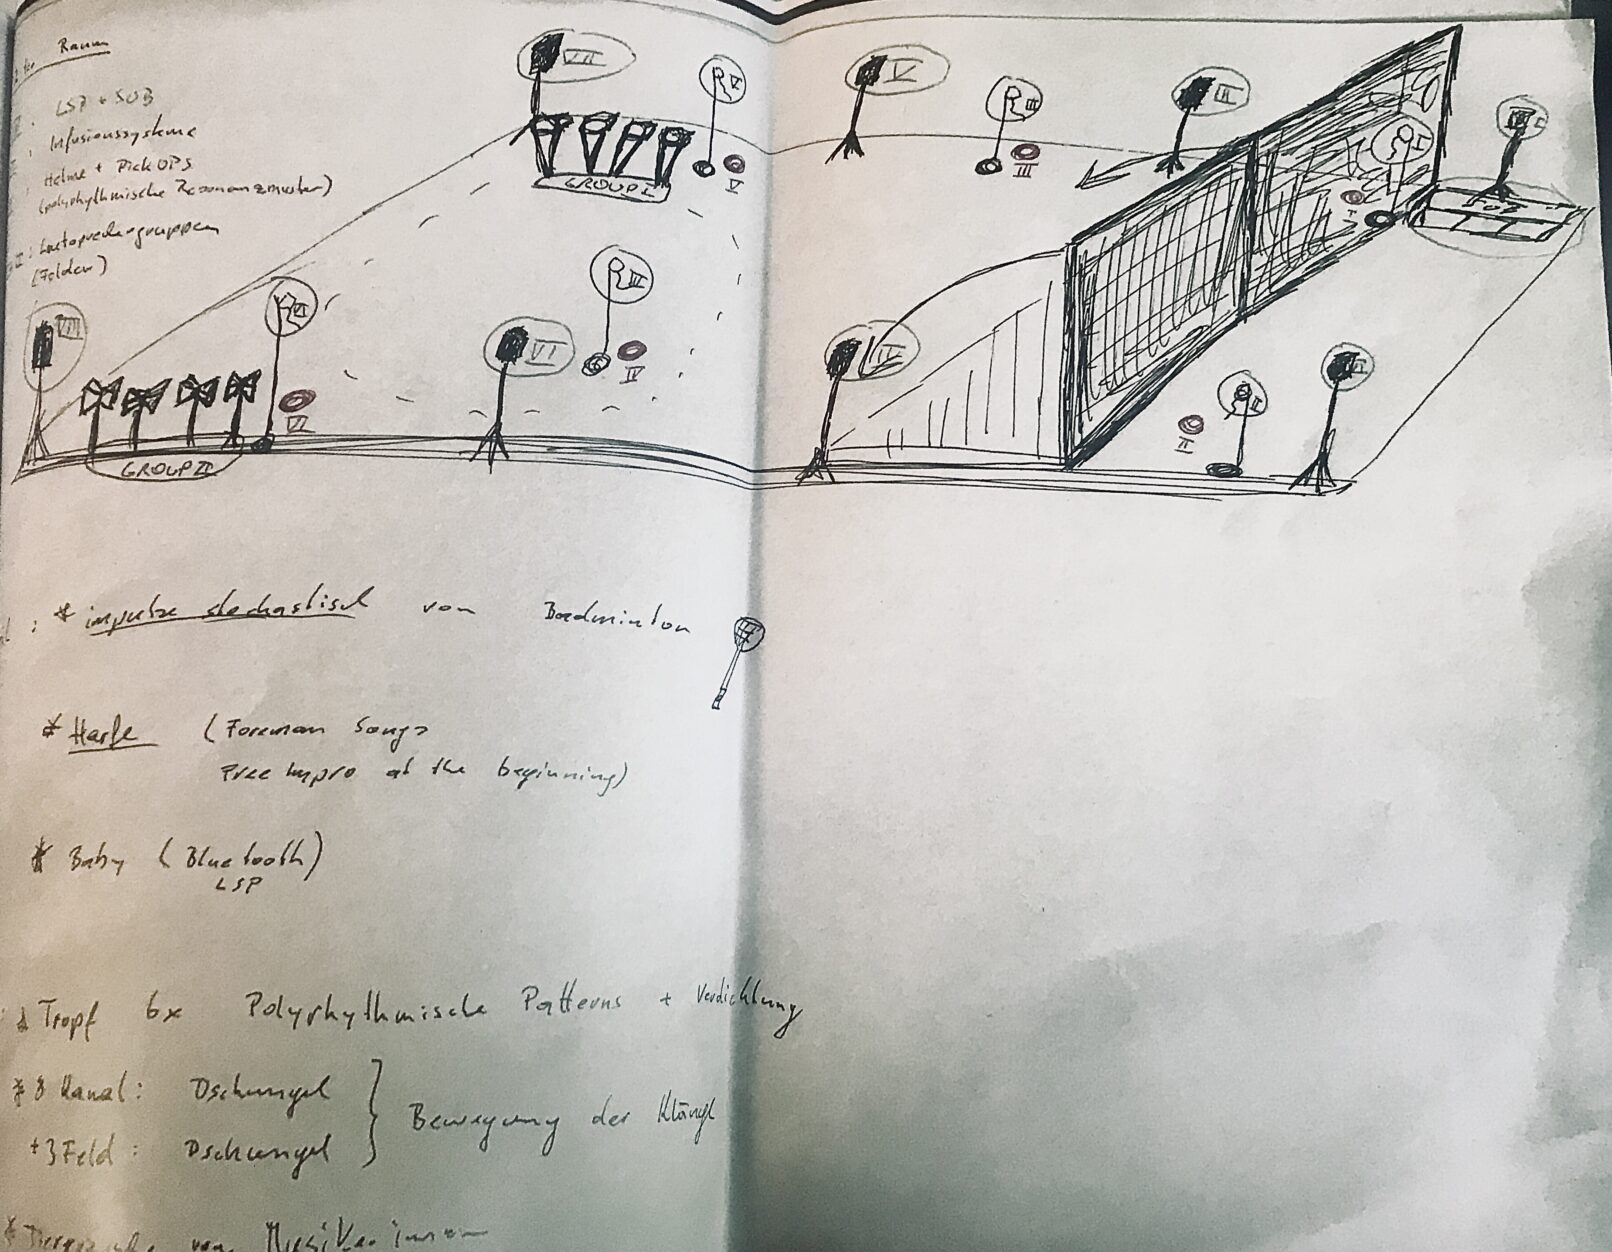 Raum
LSP + SUB
Infusionssysteme
Helme + PickUPS
(polyrhythmische Resonanzmuster)
Lautsprechergruppen
(Felder)
VII
V
V
III
II
I
I
SUB
V
III
I
GROUP I
VIII
VI
VI
IV
III
IV
VI
II
II
GROUP II
* impulse stochastisch von Badminton
* Harfe (Foreman Songs
Free Impro at the beginning)
* Baby (Bluetooth)
LSP
Tropf 6x Polyrhythmische Patterns + Verdichtung
* 8 Kanal: Dschungel
+3 Feld: Dschungel
Bewegung der Klänge
von Musikerinnen